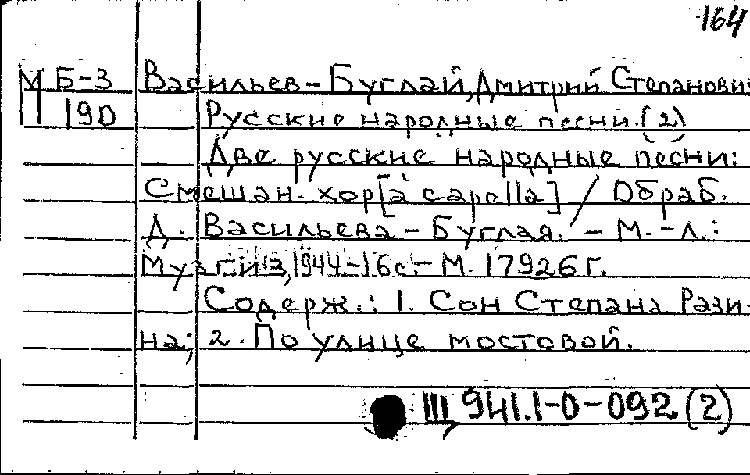 164
М Б-3 Васильев-Буглай, Дмитрий Степанови
190 Русские народные песни (2)
Две русские народные песни:
Смешан. хор [a capella] / Обраб.
Д. Васильева-Буглая. - М.-Л.:
Музгиз, 1944-16с.- М. 17926 г.
Содерж.: 1. Сон Степана Рази-
на; 2. По улице мостовой.
III, 941.1-0-092 (2)